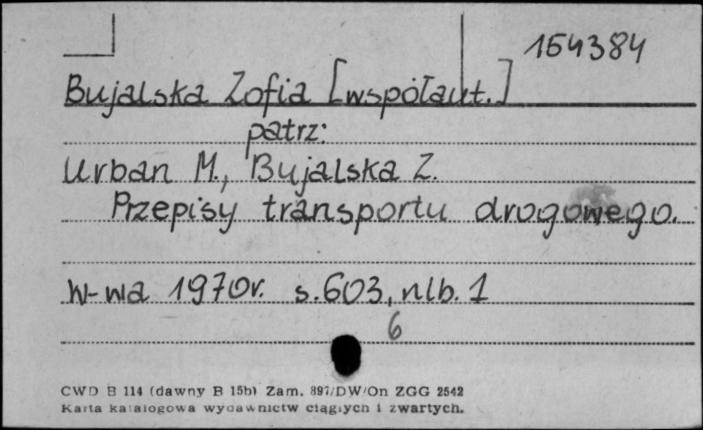 154384
Bujalska Zofia [współaut.]
patrz:
Urban M., Bujalska Z.
Przepisy transportu drogowego.
W-wa 1970r. s.603, nlb. 1
6
CWD B 114 (dawny B 15b) Zam. 897/DW/On ZGG 2542
Karta katalogowa wydawnictw ciągłych i zwartych.